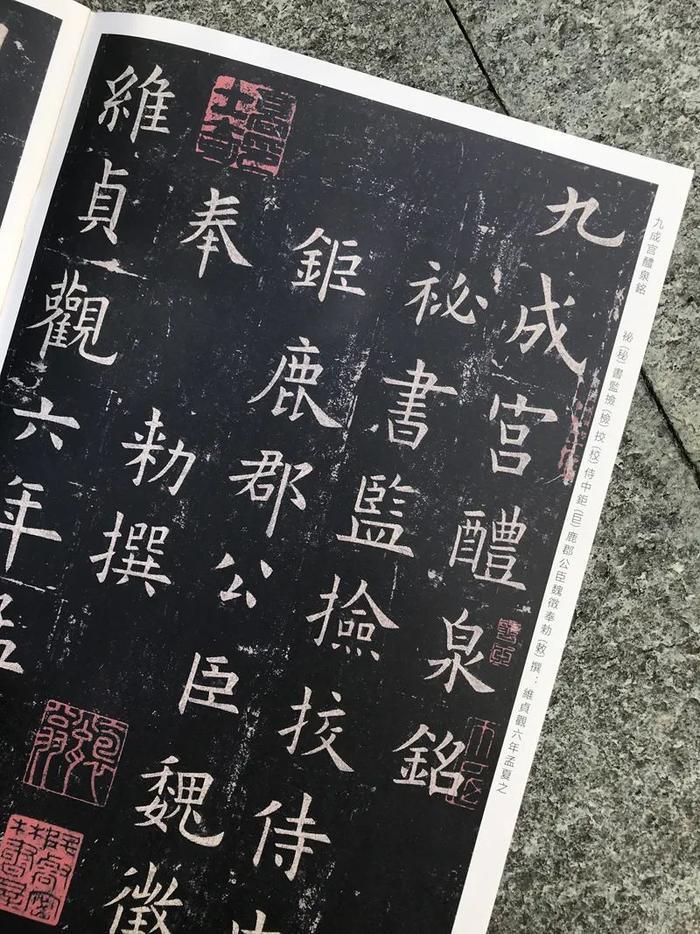 九成宮醴泉銘
祕(秘)書監撿(檢)挍(校)侍中鉅(巨)鹿郡公臣魏徵奉勅(敕)撰：維貞觀六年孟夏之
九成宮醴泉銘
祕書監撿挍侍
鉅鹿郡公臣魏徵
奉
勅撰
維貞觀六年孟